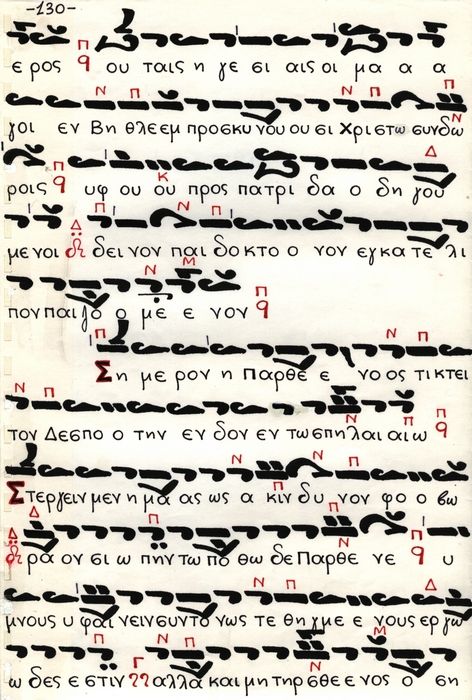 -130-
ε ρος π q ου ταις η γε σι αις οι μα α α
γοι εν Βη θλεεμ προσκυνου ου σι Χριστω συνδω
ροις q υφ ου ου προς πατρι δα ο δη γου
με νοι δει νον παι δο κτο ο νον εγκα τε λι
πον παι ζο ο με ε νον q
Ση με ρον η Παρθε ε νο ος τι κτει
τον Δεσπο ο την εν δον εν τω σπη λαι αι ω q
Στεργειν μεν η μα ας ως α κιν δυ νον φο ο βω
ρα ον σι ω πην τω πο θω δε Παρθε νε q υ
μνους υ φαι νειν συντο νως τε θη γμε ε νους εργω
ω δες ε στιν αλλα και μη τηρ σθε ε νος ο ση